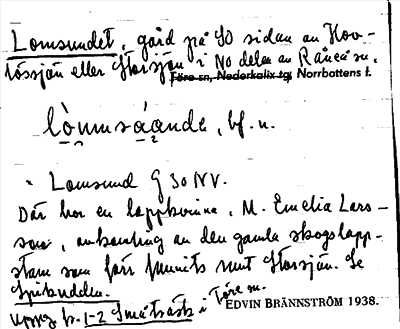 Lomsundet, gård på SO sidan av Hov-
lössjön eller Storsjön i NO delen av Råneå sn.
Töre sn, Nederkalix tg, Norrbottens l.
lònmsáande, bf. n.
Lomsund G 30 NV.
Där bor en lappkvinna, M. Emelia Lars-
son, avkomling av den gamla skogslapp-
stam som förr funnits runt Storsjön. Se
Spikudden.
uppg. fr. 1-2 Småträsk i Töre sn.
EDVIN BRÄNNSTRÖM 1938.